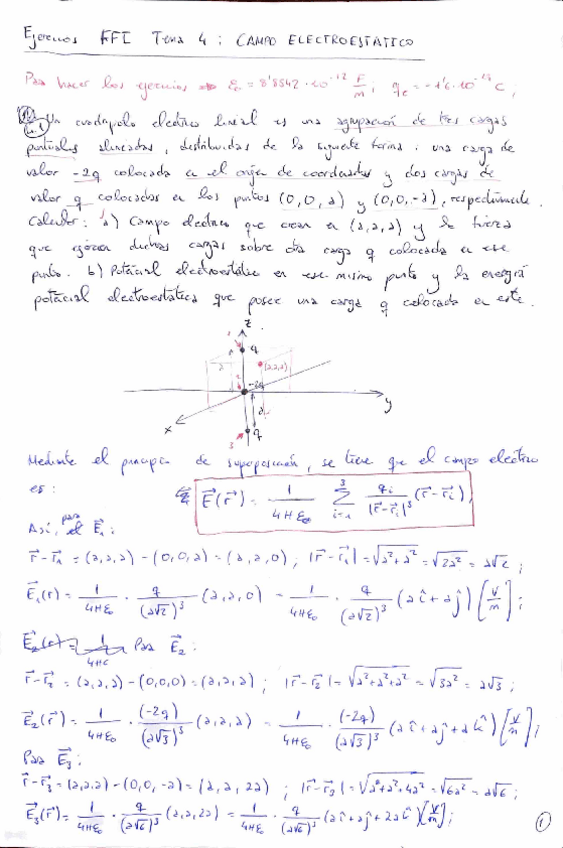 Ejercicios FFI Tema 4 : CAMPO ELECTROESTATICO
Para hacer los ejercicios → ε₀ = 8'8542 · 10⁻¹² F/m ; qe = -1'6 · 10⁻¹⁹ C ;
Un cuadrupolo eléctrico lineal es una agrupación de tres cargas
puntuales alineadas, distribuidas de la siguiente forma : una carga de
valor -2q colocada en el origen de coordenadas y dos cargas de
valor q colocadas en los puntos (0,0,a) y (0,0,-a), respectivamente.
Calcular : a) Campo eléctrico que crean en (a,a,a) y la fuerza
que ejercen dichas cargas sobre otra carga q colocada en ese
punto. b) Potencial electroestático en ese mismo punto y la energía
potencial electroestática que posee una carga q colocada en este.
z
1
q
a
(a,a,a)
2
-2q
a
y
x
3
q
Mediante el principio de superposición, se tiene que el campo eléctrico
es : E⃗(r⃗) = 1/4πε₀ Σ_{i=1}^{3} qᵢ/|r⃗-r⃗ᵢ|³ (r⃗-r⃗ᵢ),
Así, para el E⃗₁ :
r⃗-r⃗₁ = (a,a,a) - (0,0,a) = (a,a,0) ; |r⃗-r⃗₁| = √a²+a² = √2a² = a√2 ;
E⃗₁(r) = 1/4πε₀ · q/(a√2)³ (a,a,0) = 1/4πε₀ · q/(a√2)³ (aî+aĵ) [V/m] ;
E⃗₂(r) = 1/4πε Para E⃗₂ :
r⃗-r⃗₂ = (a,a,a) - (0,0,0) = (a,a,a) ; |r⃗-r⃗₂| = √a²+a²+a² = √3a² = a√3 ;
E⃗₂(r⃗) = 1/4πε₀ · (-2q)/(a√3)³ (a,a,a) = 1/4πε₀ · (-2q)/(a√3)³ (aî+aĵ+ak̂) [V/m] ;
Para E⃗₃ :
r⃗-r⃗₃ = (a,a,a) - (0,0,-a) = (a,a,2a) ; |r⃗-r⃗₃| = √a²+a²+4a² = √6a² = a√6 ;
E⃗₃(r⃗) = 1/4πε₀ · q/(a√6)³ (a,a,2a) = 1/4πε₀ · q/(a√6)³ (aî+aĵ+2ak̂) [V/m] ;
1